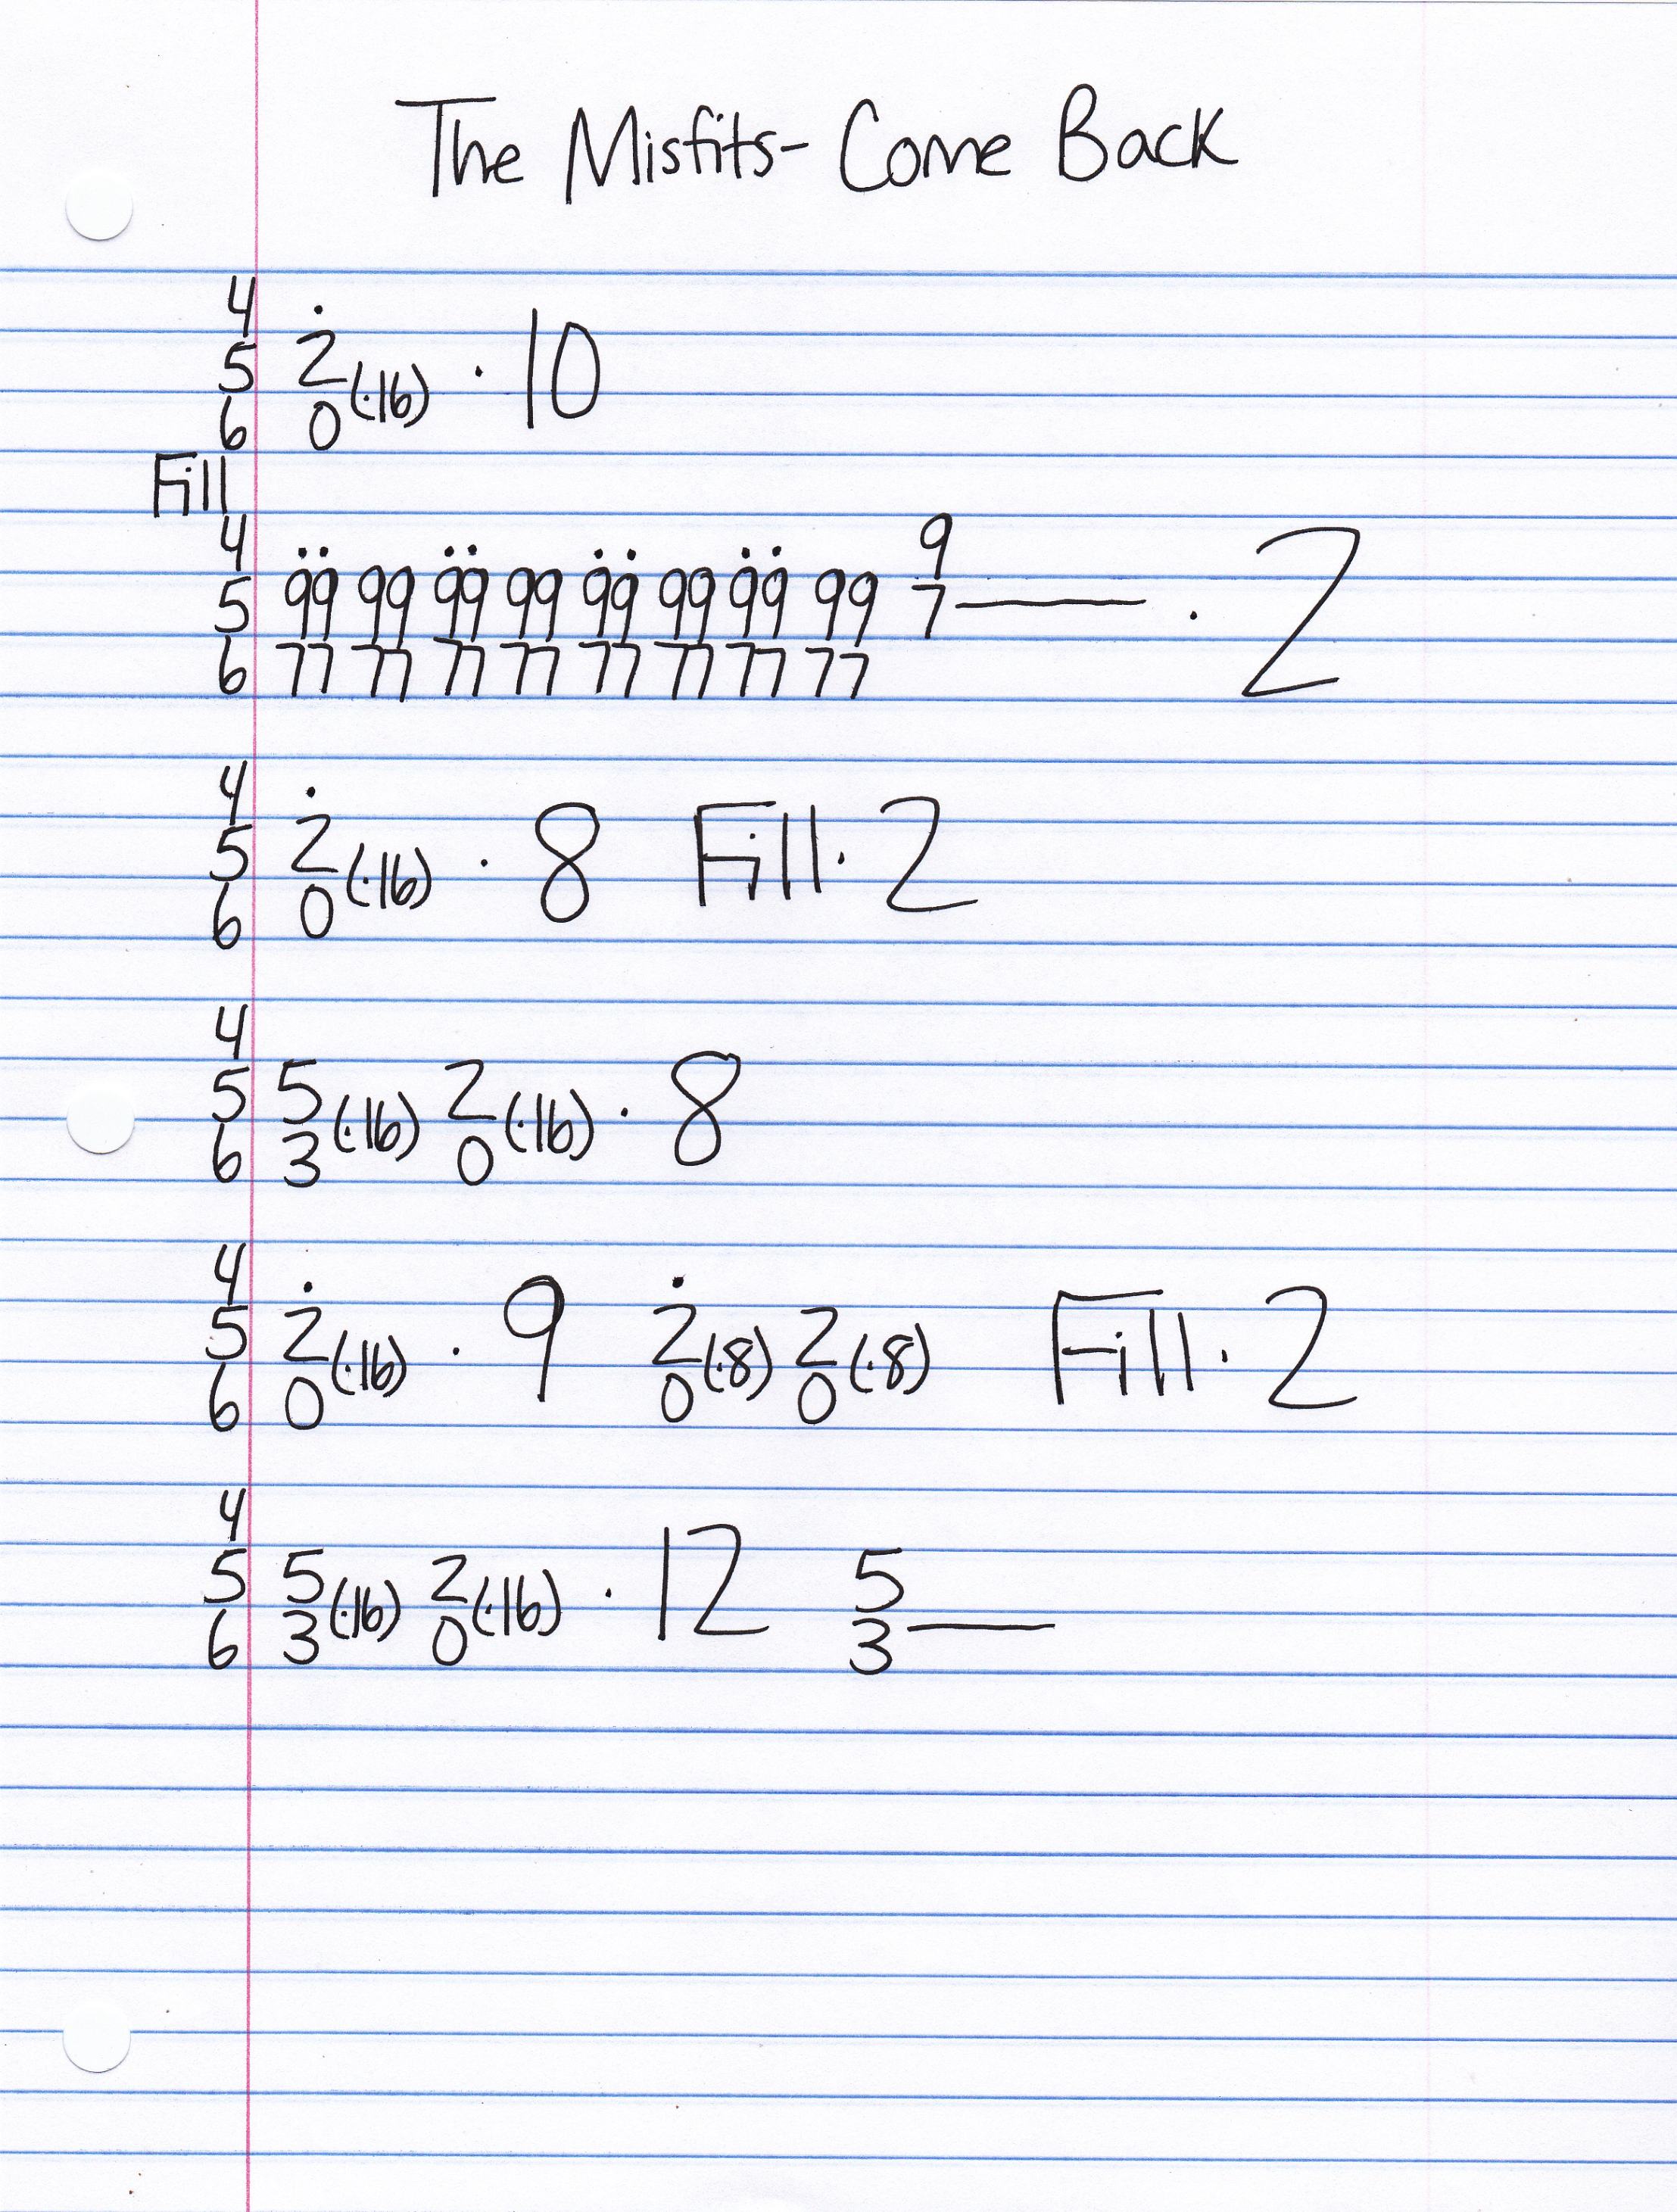 The Misfits- Come Back
4 .
5 2 (·16) · 10
6 0
Fill
4 .. .. .. .. 9
5 99 99 99 99 99 99 99 99 7—— · 2
6 77 77 77 77 77 77 77 77
4 .
5 2 (·16) · 8 Fill · 2
6 0
4
5 5 (·16) 2 (·16) · 8
6 3 0
4 . .
5 2 (·16) · 9 2 (·8) 2 (·8) Fill · 2
6 0 0 0
4
5 5 (·16) 2 (·16) · 12 5
6 3 0 3——